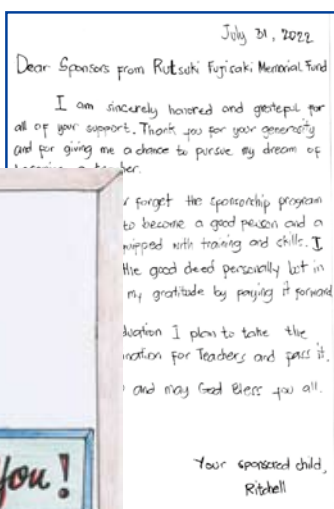 July 31, 2022
Dear Sponsors from Rutsuki Fujisaki Memorial Fund
I am sincerely honored and grateful for
all of your support. Thank you for your generosity
and for giving me a chance to pursue my dream of
forget the sponsorship program
to become a good person and a
with training and skills. I
the good deed personally but in
my gratitude by paying it forward
I plan to take the
for Teachers and pass it.
and may God Bless you all.
Your sponsored child,
Ritchell
You!